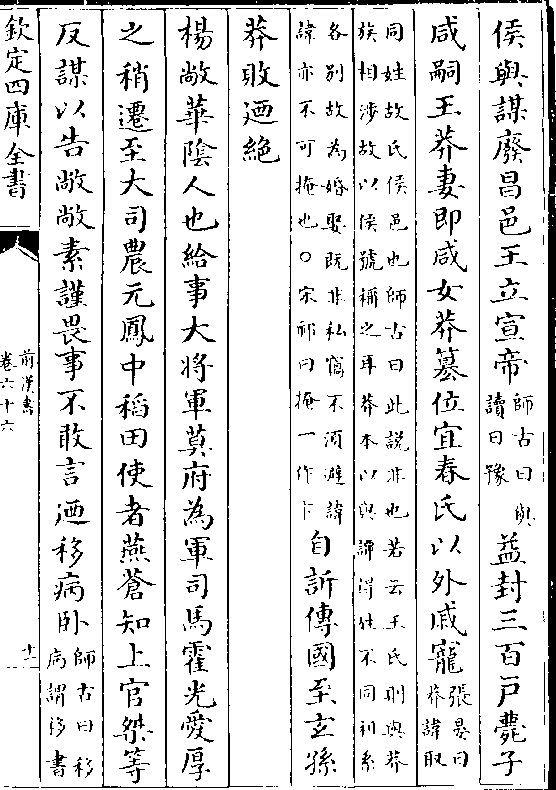 侯與謀廢昌邑王立宣帝師古曰與讀曰豫益封三百戸薨子
咸嗣王莽妻即咸女莽簒位宜春氏以外戚寵張晏曰莽諱取
同姓故氏侯邑也師古曰此說非也若云王氏則與莽
族相涉故以侯號稱之耳莽本以與譚得姓不同利系
各别故為婚娶既非私竊不須避諱
諱亦不可掩也○宋祁曰掩一作卞
自訢傳國至玄孫
莽敗廼絶
楊敞華陰人也給事大將軍莫府為軍司馬霍光愛厚
之稍遷至大司農元鳳中稻田使者燕蒼知上官桀等
反謀以告敞敞素謹畏事不敢言廼移病卧師古曰移病謂移書
欽定四庫全書
前漢書
卷六十六
十二